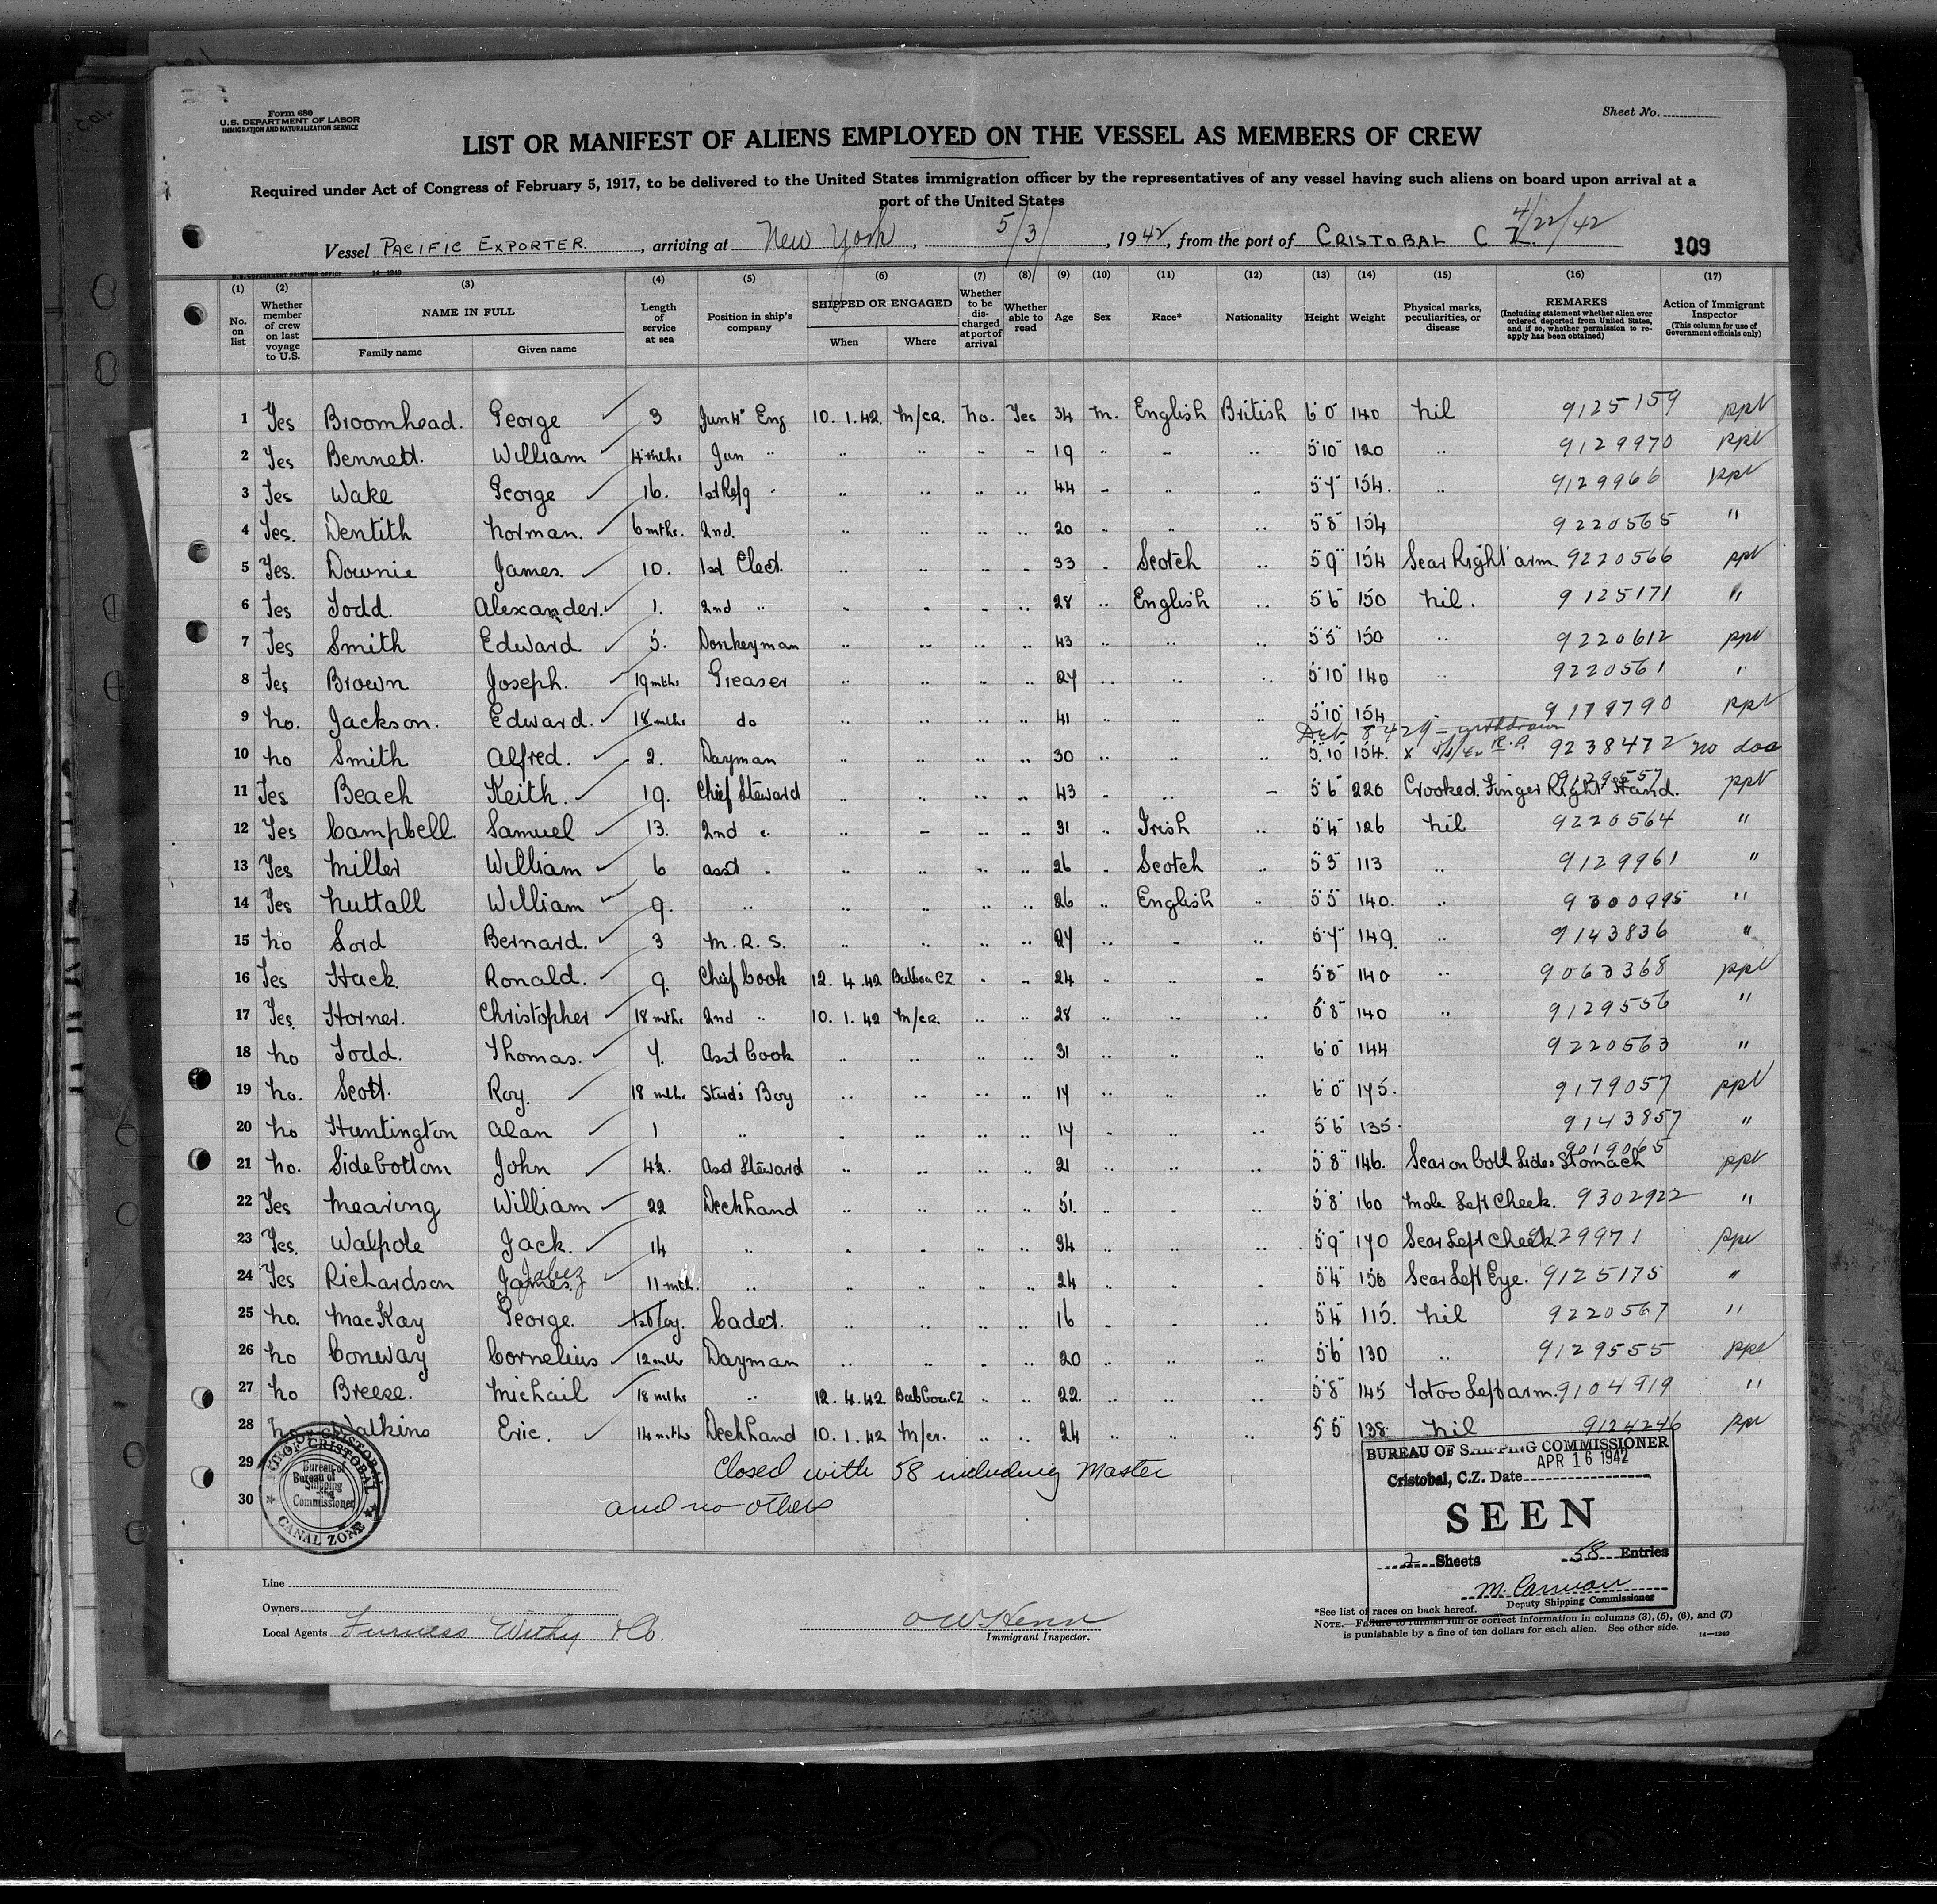 Form 680
U.S. DEPARTMENT OF LABOR
IMMIGRATION AND NATURALIZATION SERVICE
Sheet No.
LIST OR MANIFEST OF ALIENS EMPLOYED ON THE VESSEL AS MEMBERS OF CREW
Required under Act of Congress of February 5, 1917, to be delivered to the United States immigration officer by the representatives of any vessel having such aliens on board upon arrival at a
port of the United States
Vessel PACIFIC EXPORTER. , arriving at New York , 5/3/ , 1942, from the port of CRISTOBAL C Z. 4/22/42
109
U.S. GOVERNMENT PRINTING OFFICE 14—1240
(1) (2) (3) (4) (5) (6) (7) (8) (9) (10) (11) (12) (13) (14) (15) (16) (17)
No. on list
Whether member of crew on last voyage to U.S.
NAME IN FULL
Family name Given name
Length of service at sea
Position in ship's company
SHIPPED OR ENGAGED
When Where
Whether to be discharged at port of arrival
Whether able to read
Age
Sex
Race*
Nationality
Height
Weight
Physical marks, peculiarities, or disease
REMARKS
(Including statement whether alien ever ordered deported from United States, and if so, whether permission to re-apply has been obtained)
Action of Immigrant Inspector
(This column for use of Government officials only)
1 Yes Broomhead. George 3 Jun 4" Eng 10.1.42. M/CR. No. Yes 34 M. English British 6'0" 140 Nil 9125159 ppt
2 Yes Bennett. William 4 mths. Jun " " " " " 19 " " " 5'10" 120 " 9129970 ppt
3 Yes Wake George 16. 1st Refg " " " " " 44 " " " 5'7" 154. " 9129966 ppt
4 Yes. Dentith Norman. 6 mths. 2nd. " " " " 20 " " " 5'8" 154 9220565 "
5 Yes. Downie James. 10. 1st Elect. " " " " 33 " Scotch " 5'9" 154 Scar Right arm 9220566 ppt
6 Yes Todd. Alexander. 1. 2nd " " " " " 28 " English " 5'6" 150 Nil. 9125171 "
7 Yes Smith Edward. 5. Donkeyman " " " " 43 " " " 5'5" 150 " 9220612 ppt
8 Yes Brown Joseph. 19 mths Greaser " " " " 27 " " " 5'10" 140 " 9220561 "
9 No. Jackson. Edward. 18 mths do " " " " 41 " " " 5'10" 154 " 9179790 ppt
withdrawn
10 No Smith Alfred. 2. Dayman " " " " 30 " " " 5'10" 154. 9238472 no doc
11 Yes Beach Keith. 19. Chief Steward " " " " 43 " " " 5'6" 220 Crooked Finger Right Hand. 9129557 ppt
12 Yes Campbell Samuel 13. 2nd " " " " " 31 " Irish " 5'4" 126 Nil 9220564 "
13 Yes Miller William 6 Asst " " " " " 26 " Scotch " 5'3" 113 " 9129961 "
14 Yes Nuttall William 9. " " " " " 26 " English " 5'5" 140. " 9300995 "
15 No Lord Bernard. 3 M.R.S. " " " " 27 " " " 5'7" 149. " 9143836 "
16 Yes Hack Ronald. 9. Chief Cook 12.4.42 Balboa CZ " " 24 " " " 5'8" 140 " 9063368 ppt
17 Yes. Horner. Christopher 18 mths 2nd " 10.1.42 M/CR. " " 28 " " " 5'8" 140 " 9129556 "
18 No Todd. Thomas. 7. Asst Cook " " " " 31 " " " 6'0" 144 9220563 "
19 No. Scott. Roy. 18 mths. Stwd's Boy " " " " 17 " " " 6'0" 175. 9179057 ppt
20 No Huntington Alan 1 " " " " " 17 " " " 5'6" 135. 9143857 "
21 No. Sidebottom John 4½. Asst Steward " " " " 21 " " " 5'8" 146. Scar on both sides Stomach 9019065 ppt
22 Yes Mearing William 22 Deckhand " " " " 51. " " " 5'8" 160 Mole Left Cheek. 9302922 "
23 Yes. Walpole Jack. 14 " " " " " 34 " " " 5'9" 170 Scar Left Cheek 9129971 ppt
24 Yes Richardson James. Jabez 11 mth. " " " " " 24 " " " 5'4" 156 Scar Left Eye. 9125175 "
25 No. MacKay George. 1st Voy. Cadet. " " " " 16 " " " 5'4" 115. Nil 9220567 "
26 No Conway Cornelius 12 mths Dayman " " " " 20 " " " 5'6" 130 " 9129555 ppt
27 No Breese. Michail 18 mths " 12.4.42 Balboa.CZ " " 22. " " " 5'8" 145 Totoo Left arm. 9104919 "
28 No Walkins Eric. 14 mths Deckhand 10.1.42 M/CR. " " 24 " " " 5'5" 138. Nil 9124246 ppt
29 Closed with 58 including Master
30 and no others
CRISTOBAL
Bureau of Shipping Commissioner
CANAL ZONE
BUREAU OF SHIPPING COMMISSIONER
APR 16 1942
Cristobal, C.Z. Date
SEEN
2 Sheets 58 Entries
Deputy Shipping Commissioner
Line
Owners
Local Agents Furness Withy & Co.
Immigrant Inspector.
*See list of races on back hereof.
NOTE.—Failure to furnish full or correct information in columns (3), (5), (6), and (7)
is punishable by a fine of ten dollars for each alien. See other side. 14—1240